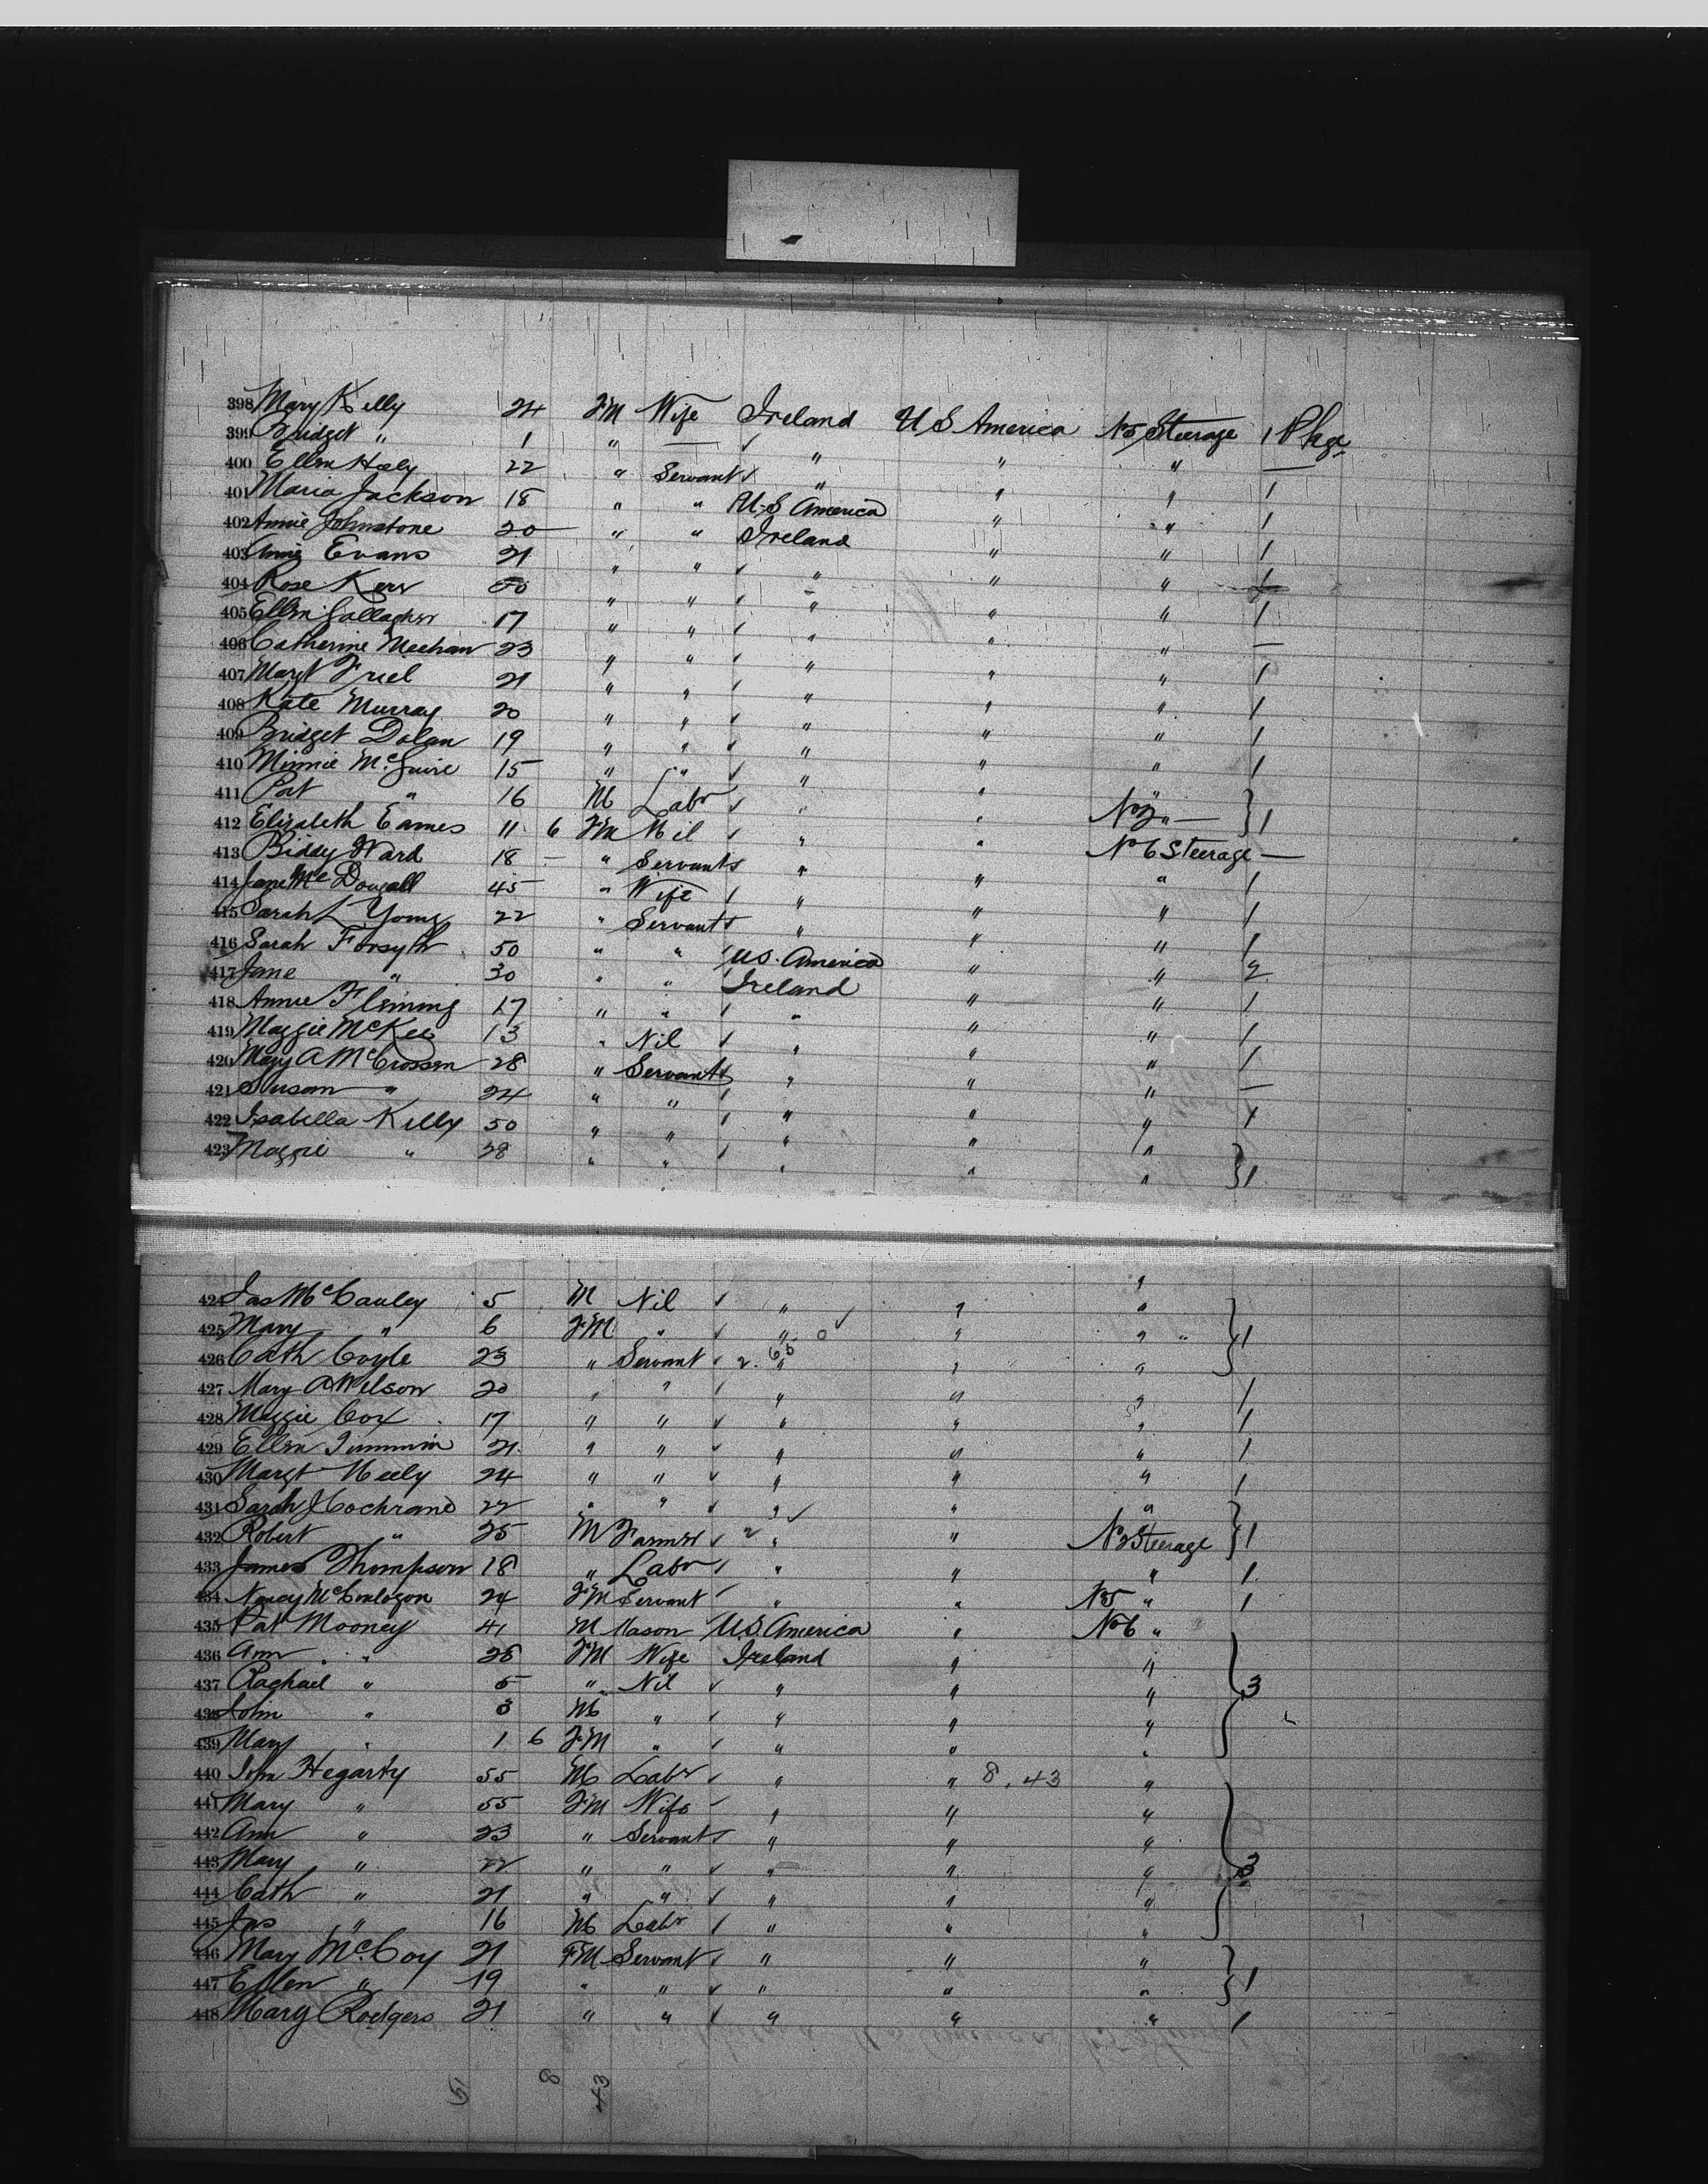 398 Mary Kelly 24 FM Wife Ireland U S America No 5 Steerage 1 Pkge
399 Bridget " 1 " — " " " —
400 Ellen Healy 22 " Servant " " " 1
401 Maria Jackson 18 " " U.S America " " 1
402 Annie Johnstone 20 " " Ireland " " 1
403 Annie Evans 21 " " " " " 1
404 Rose Kerr " " " " " 1
405 Ellen Gallagher 17 " " " " " —
406 Catherine Meehan 23 " " " " " 1
407 Margt Friel 21 " " " " " 1
408 Kate Murray 20 " " " " " 1
409 Bridget Dolan 19 " " " " " 1
410 Minnie McGuire 15 " " " " "
411 Pat " 16 M Labr " " " } 1
412 Elizabeth Eames 11 6 FM Nil " " No 6 Steerage —
413 Biddy Ward 18 — " Servant " " " 1
414 Jane McDougall 45 " Wife " " " 1
415 Sarah L Young 22 " Servant " " " 1
416 Sarah Forsyth 50 " " U.S. America " " 2
417 Jane " 30 " " Ireland " " 1
418 Annie Fleming 17 " " " " " 1
419 Maggie McKee 13 " Nil " " " 1
420 Mary A McCrossen 28 " Servant " " " —
421 Susan " 24 " " " " " 1
422 Isabella Kelly 50 " " " " "
423 Maggie " 28 " " " " " } 1
424 Jas McCauley 5 M Nil " " "
425 Mary " 6 FM " " " " } 1
426 Cath Coyle 23 " Servant " " "
427 Mary A Wilson 20 " " " " " 1
428 Maggie Cox 17 " " " " " 1
429 Ellen Timmin 21 " " " " " 1
430 Margt Neely 24 " " " " " 1
431 Sarah J Cochrane 22 " " " " "
432 Robert " 25 M Farmer " " No 2 Steerage } 1
433 James Thompson 18 " Labr " " " 1
434 Nancy 24 FM Servant " " No 5 " 1
435 Pat Mooney 41 M Mason U.S. America " No 6 "
436 Ann " 28 FM Wife Ireland " "
437 Rachael " 5 " Nil " " " } 3
438 John " 3 M " " " "
439 Mary " 1 6 FM " " " "
440 John Hegarty 55 M Labr " " 8, 43 "
441 Mary " 55 FM Wife " " "
442 Ann " 23 " Servant " " "
443 Mary " 22 " " " " " } 3
444 Cath " 21 " " " " "
445 Jas " 16 M Labr " " "
446 Mary McCoy 21 FM Servant " " "
447 Ellen " 19 " " " " " } 1
448 Mary Rodgers 21 " " " " " 1
51 8 43